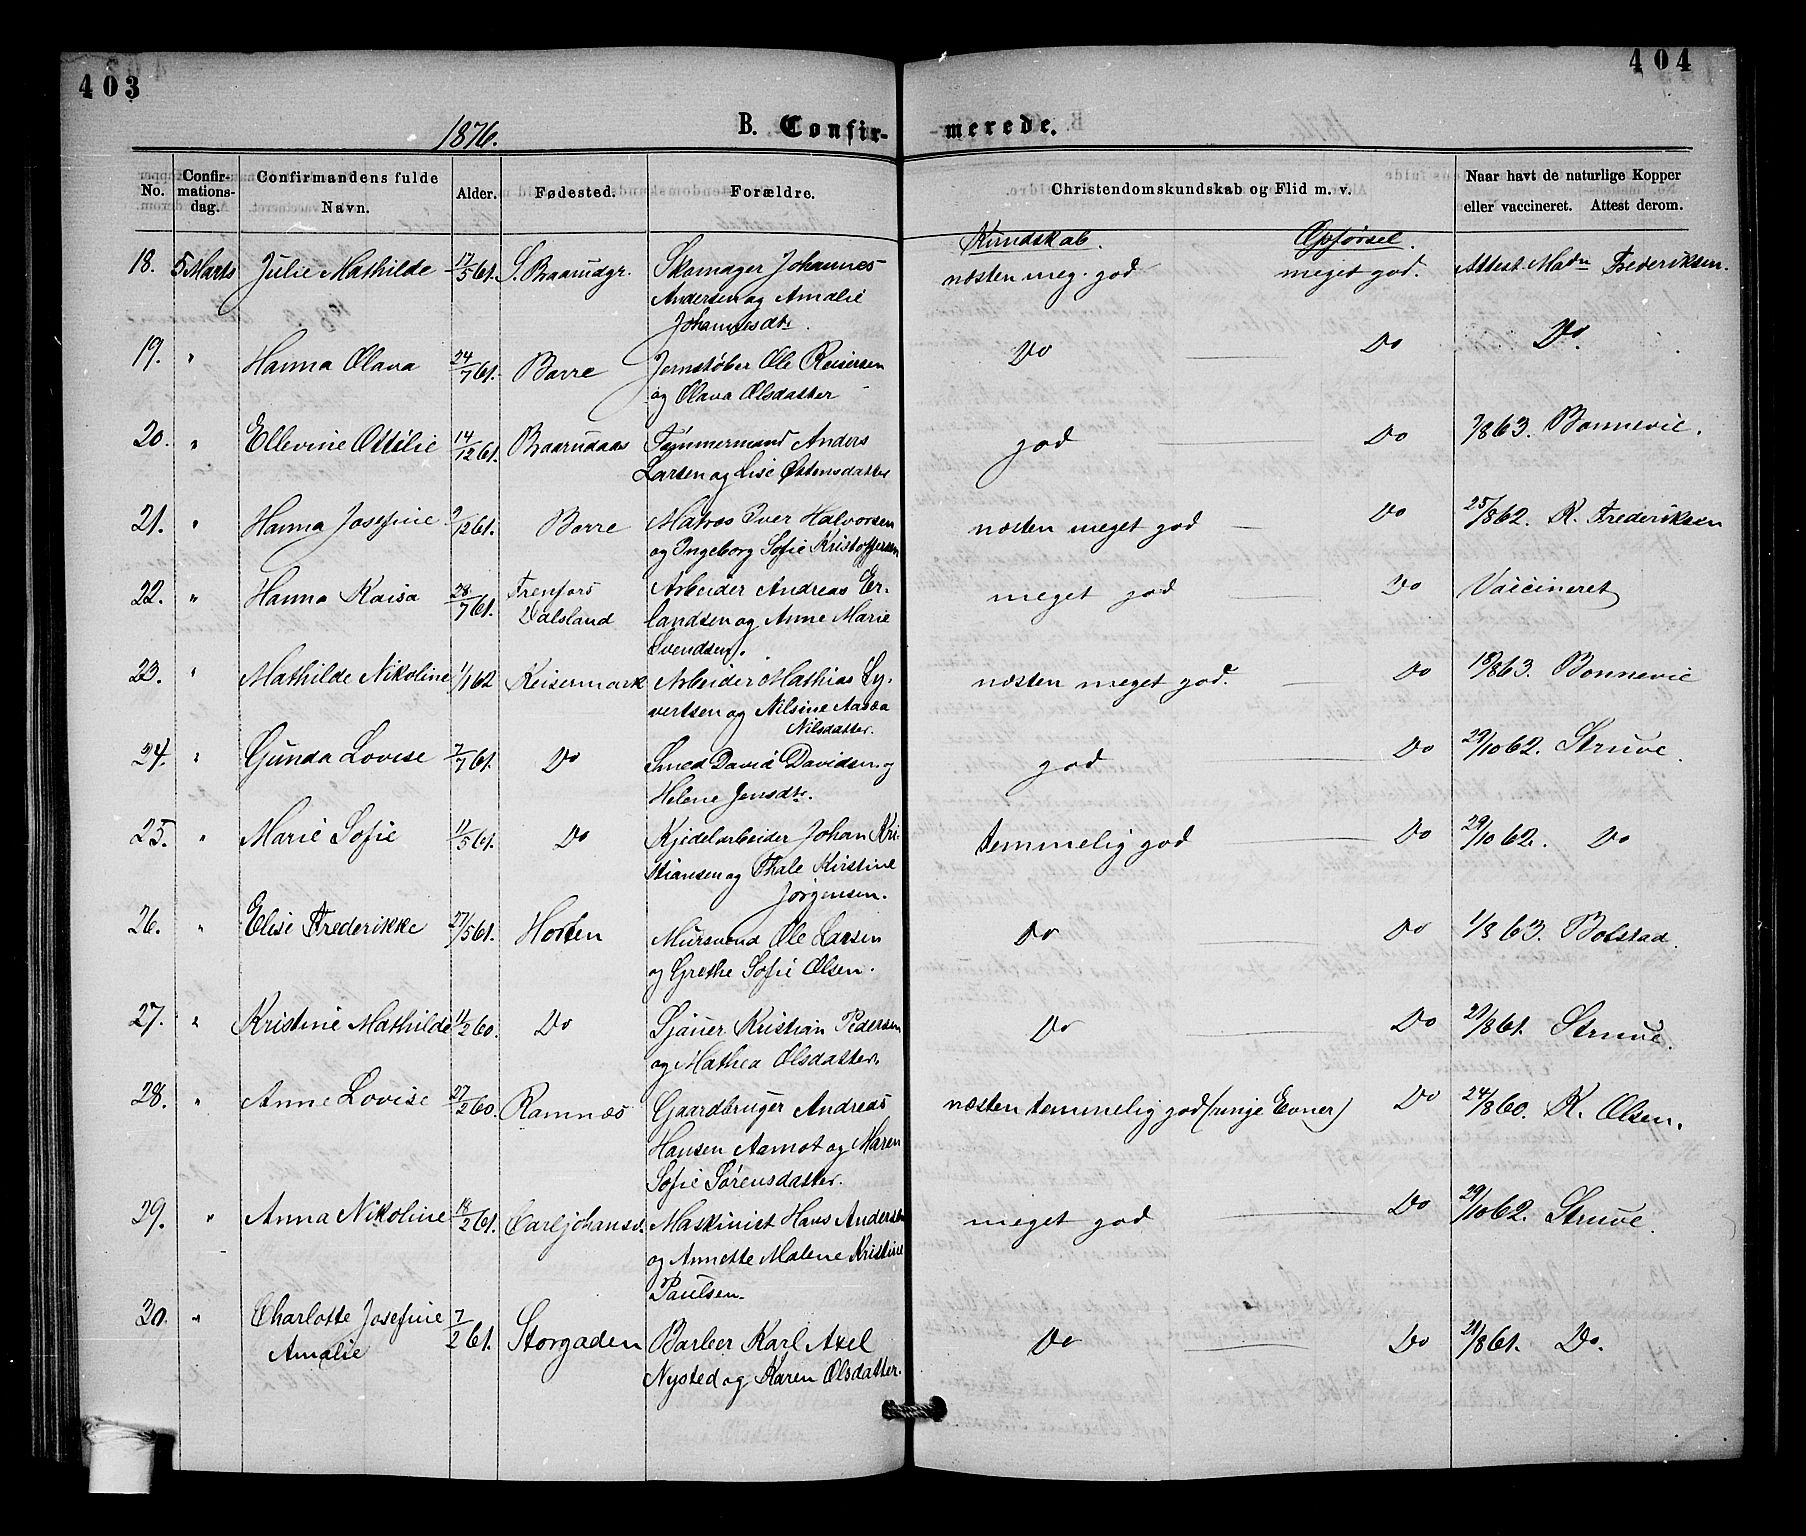 403
404
1876.
B. Confir-
merede.
No.
Confir-
mations-
dag.
Confirmandens fulde
Navn.
Alder.
Fødested.
Forældre.
Christendomskundskab og Flid m. v.
Naar havt de naturlige Kopper
eller vaccineret. Attest derom.
Kundskab. Opførsel.
18. 5 Marts Julie Mathilde 17/5 61. S. Baarudgr. Skomager Johannes næsten meg. god meget god. Attest. Madm Frederiksen.
Andersen og Amalie
Johannesdtr.
19. " Hanna Olava 24/7 61. Borre Jernstøber Ole Reiersen Do Do Do.
og Olava Olsdatter
20. " Ellevine Ottilie 14/12 61. Baarudaas Tømmermand Anders god Do 7/8 63. Bonnevie.
Larsen og Lise Østensdatter
21. " Hanna Josefine 9/12 61. Borre Matros Iver Halvorsen næsten meget god Do 25/8 62. K. Frederiksen
og Ingeborg Sofie Kristoffersen
22. " Hanna Kaisa 28/7 61. Frenfors Arbeider Andreas Er- meget god Do Vaccineret
Dalsland landsen og Anne Marie
Svendsen.
23. " Mathilde Nikoline 1/1 62 Keisermark Arbeider Mathias Sy- næsten meget god. Do 18/8 63. Bonnevie
vertsen og Nilsine Aasea
Nilsdatter.
24. " Gunda Lovise 7/7 61. Do Smed David Davidsen og god Do 29/10 62. Struve.
Helene Jensdtr.
25. " Marie Sofie 11/5 61. Do Kjedelarbeider Johan Kri- temmelig god Do 29/10 62. Do
stiansen og Thale Kirstine
Jørgensen.
26. " Elise Frederikke 27/5 61. Horten Mursvend Ole Larsen Do Do 1/8 63. Bolstad.
og Grethe Sofie Olsen.
27. " Kristine Mathilde 11/2 60. Do Sjauer Kristian Pedersen Do Do 29/8 61. Struve.
og Mathea Olsdatter.
28. " Anne Lovise 27/2 60. Ramnæs Gaardbruger Andreas næsten temmelig god (ringe Evner) Do 24/8 60. K. Olsen.
Hansen Aamot og Maren
Sofie Sørensdatter.
29. " Anna Nikoline 18/2 61. Carljohansv. Maskinist Hans Andersen meget god Do 29/10 62. Struve.
og Annette Malene Kristine
Paulsen.
30. " Charlotte Josefine 7/2 61. Storgaden Barber Karl Axel Do Do 21/8 61. Do.
Amalie Nysted og Karen Olsdatter.